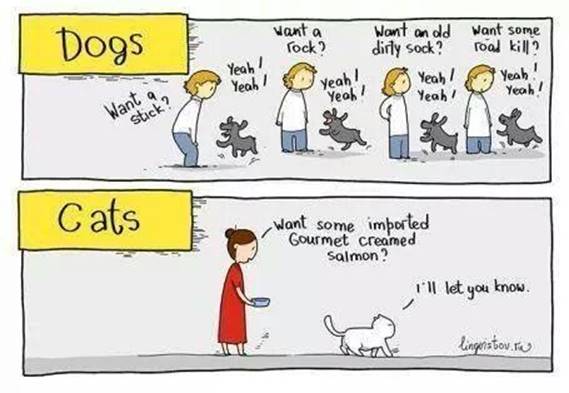 Dogs
Want a
stick?
Yeah!
Yeah!
Want a
rock?
Yeah!
Yeah!
Want an old
dirty sock?
Yeah!
Yeah!
Want some
road kill?
Yeah!
Yeah!
Cats
Want some imported
Gourmet creamed
salmon?
I'll let you know.
lingvistov.ru